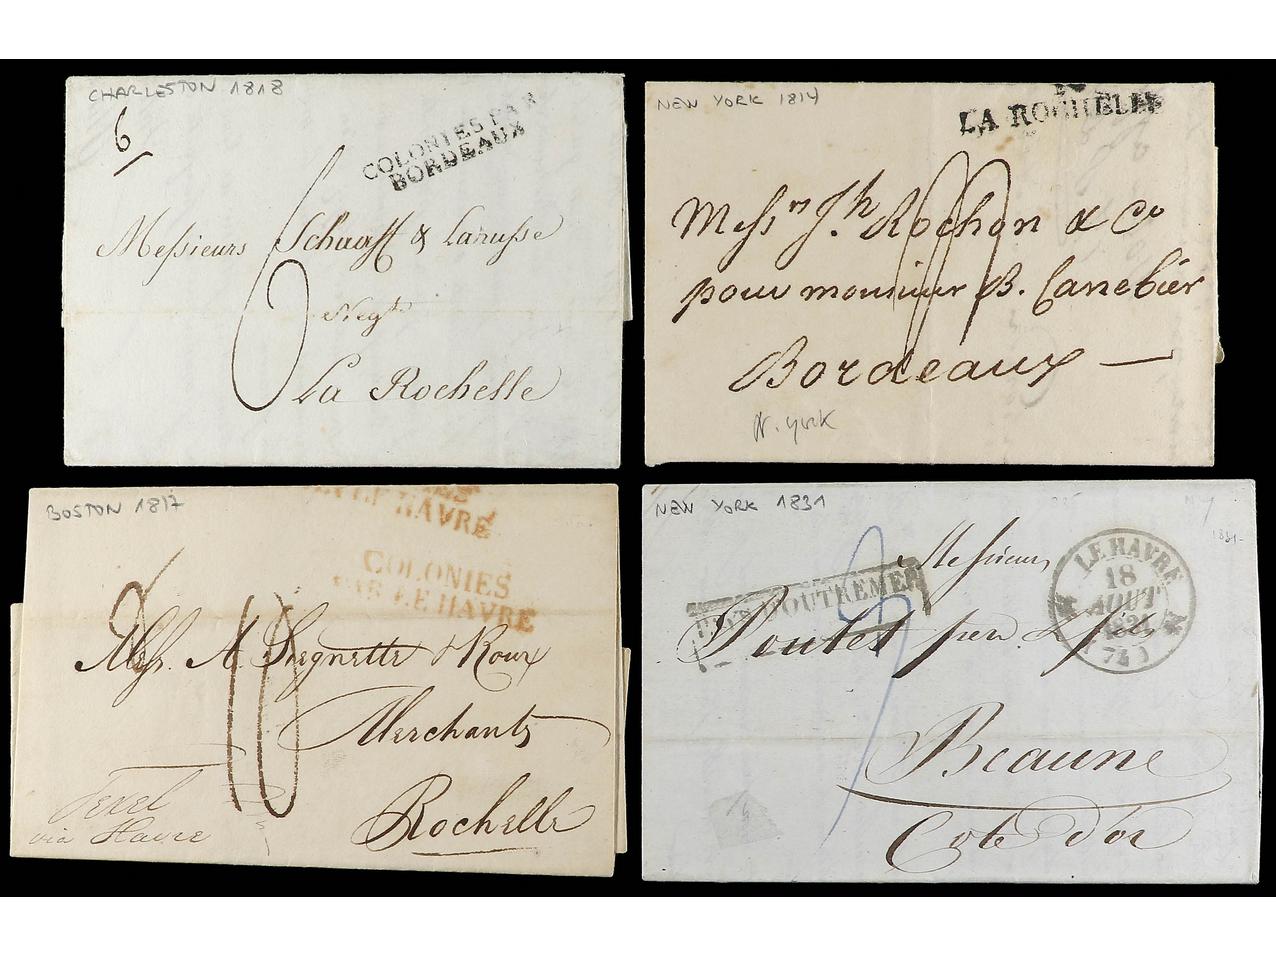 CHARLESTON 1818
6
COLONIES PAR
BORDEAUX
Messieurs Schaaff & Larusse
6
Negts
La Rochelle
NEW YORK 1814
LA ROCHELLE
Messrs Jh. Rochon & Co
pour monsieur B. Canebier
Bordeaux —
N. York
BOSTON 1817
PAR LE HAVRE
COLONIES
PAR LE HAVRE
Mess. A. Seignette & Roux
10
Merchants
Rochelle
Texel
via Havre
NEW YORK 1831
Messieurs
LE HAVRE
18
AOUT
1831
(74)
PAYS D'OUTREMER
Poulet père & fils
Beaune
Cote d'or